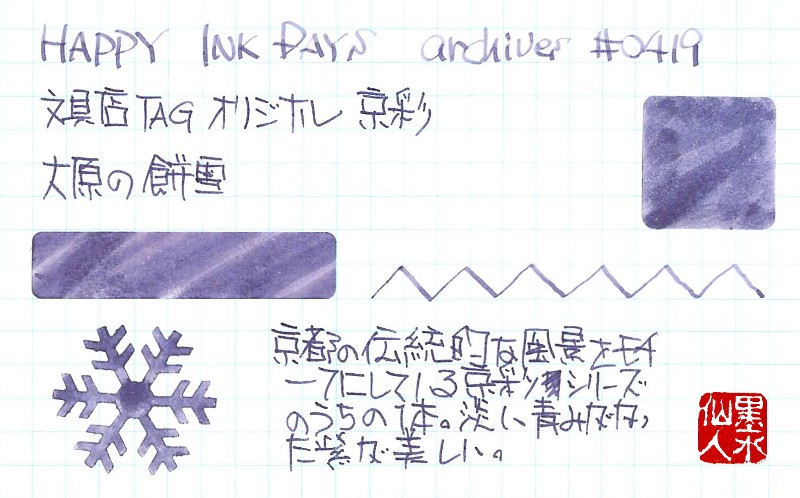 HAPPY INK DAYS archives #0419
文具店TAG オリジナル 京彩
大原の餅雪
京都の伝統的な風景をモチ
ーフにしている京彩シリーズ
のうちの1本。淡い青みがかっ
た紫が美しい。
墨水
仙人